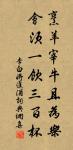 烹羊宰牛且為樂
會須一飲三百杯
李白將進酒詩共興國書